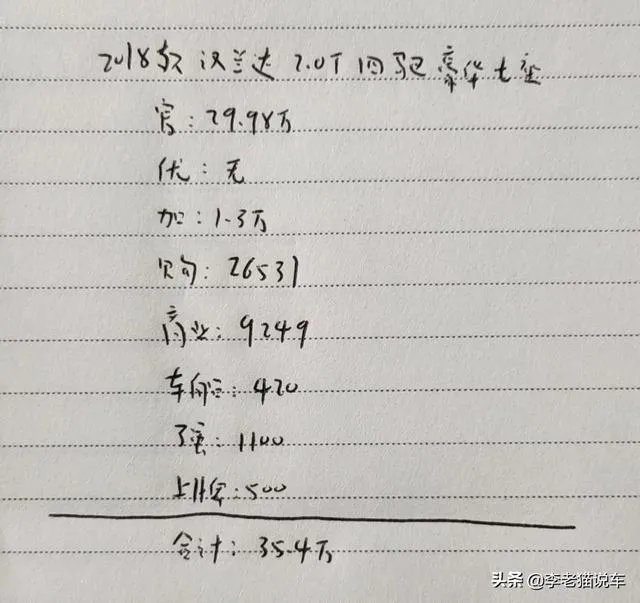 2018款 汉兰达 2.0T 四驱豪华七座
官:29.98万
优:无
加:1.3万
购:26531
商业:9249
车船:420
强:1100
上牌:500
合计:35.4万
头条 @李老猫说车